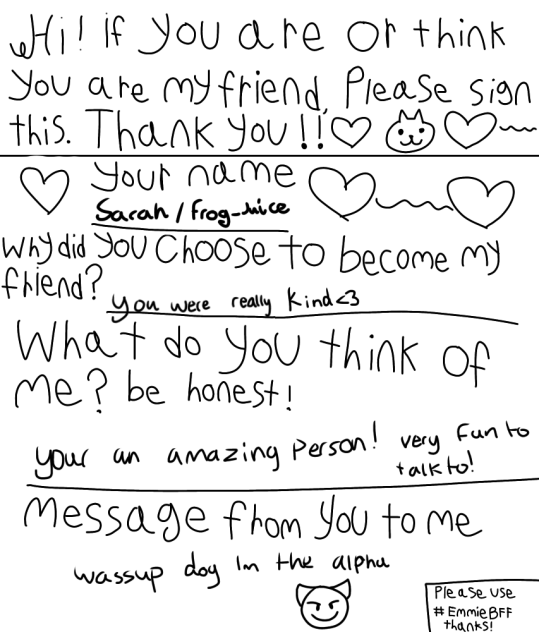 Hi! if you are or think
you are my friend, Please sign
this. Thank you!!
Your name
Sarah / frog-juice
Why did you choose to become my
friend?
you were really kind <3
What do you think of
me? be honest!
your an amazing person! very fun to
talk to!
Message from you to me
wassup dog Im the alpha
Please use
#EmmieBFF
thanks!